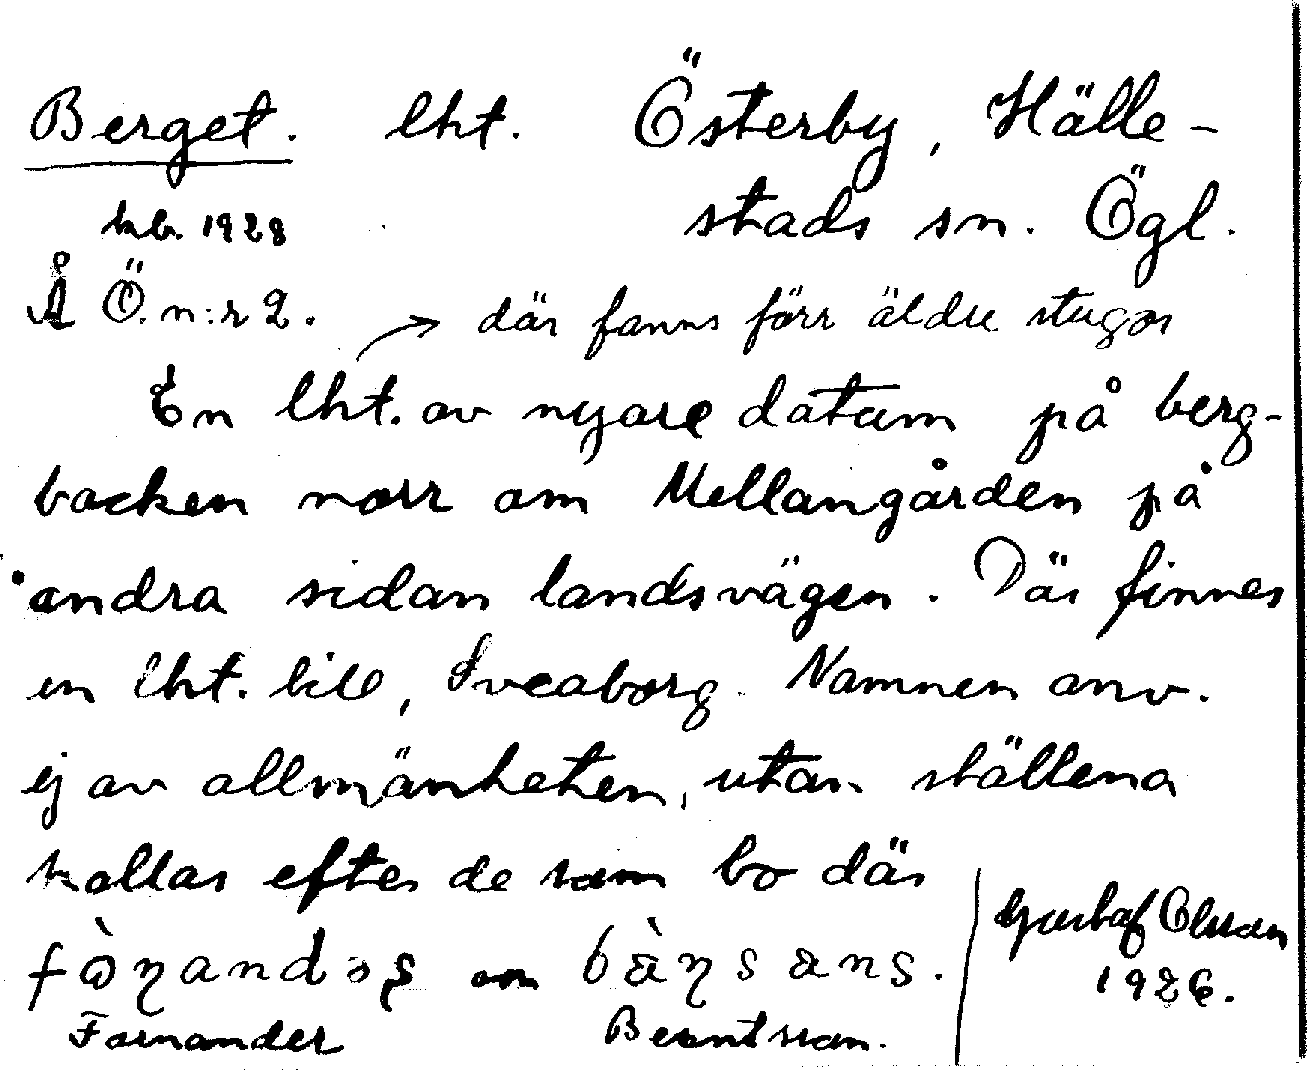 Berget. lht. Österby, Hälle-
kb. 1928 stads sn. Ögl.
Å Ö. n:r 2. → där fanns förr äldre stugor
En lht. av nyare datum på berg-
backen norr om Mellangården på
andra sidan landsvägen. Där finnes
en lht. till, Sveaborg. Namnen anv.
ej av allmänheten, utan ställena
kallas efter de som bo där
Gustaf Olsson
1926.
Farnander Berntsson.